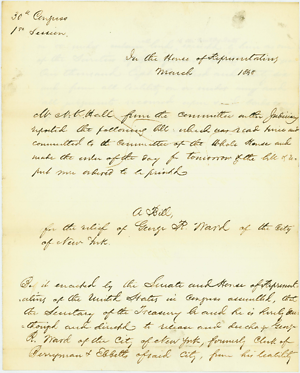 30th Congress
1st Session
In the House of Representatives
March 1848
Mr N. K. Hall from the Committee on the Judiciary
reported the following bill which was read twice and
committed to the Committee of the Whole House and
made the order of the day for tomorrow & the bill &
ordered to be printed
A Bill,
for the relief of George R. Ward of the City
of New York.
Be it enacted by the Senate and House of Represent-
atives of the United States in Congress assembled, that
the Secretary of the Treasury be and he is hereby au-
thorized and directed to release and discharge George
R. Ward of the City, of New York, formerly Clerk of
Perryman & of said City, from his liability